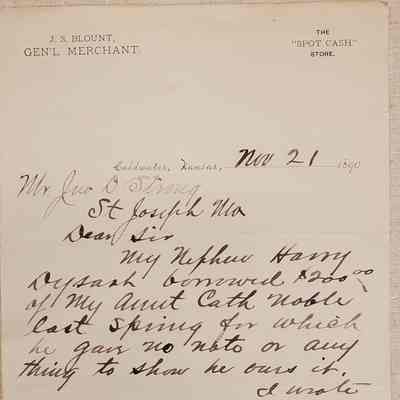 J. S. BLOUNT,
GEN'L MERCHANT.
THE
"SPOT CASH"
STORE.
Coldwater, Kansas, Nov 21 1890
Mr. Jno D. Strong
St Joseph Mo
Dear Sir
My Nephew Harry
Dysart borrowed $200 00
of My Aunt Cath Noble
last spring for which
he gave no note or any
thing to show he ours it.
I wrote